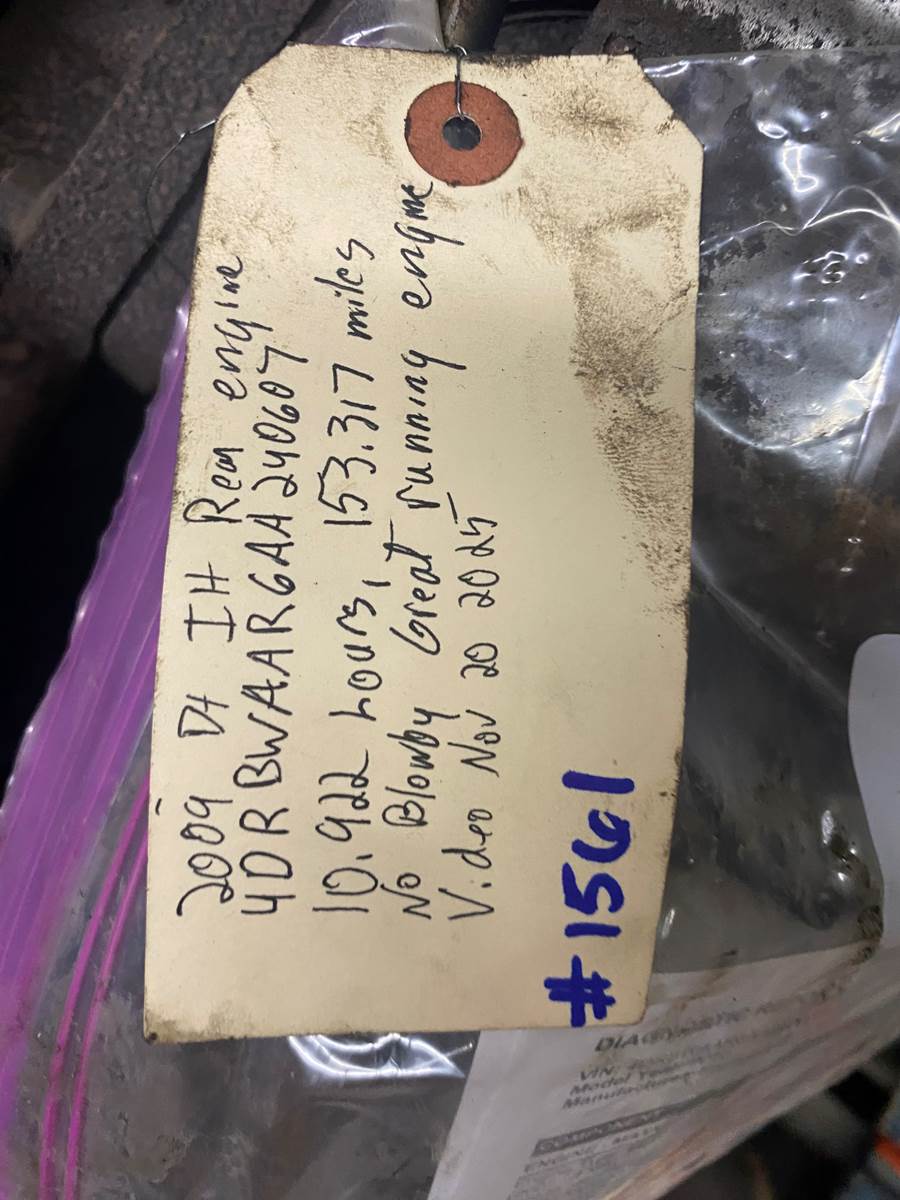 2009 Dt IH Rear engine
4DRBWAAR6AA240607
10.922 hours, 153.317 miles
No Blowby Great running engine
Video Nov 20 2025
#1561
DIAGNOSTIC
VIN:
Model Year
Manufacturer
COMPONENT
ENGINE